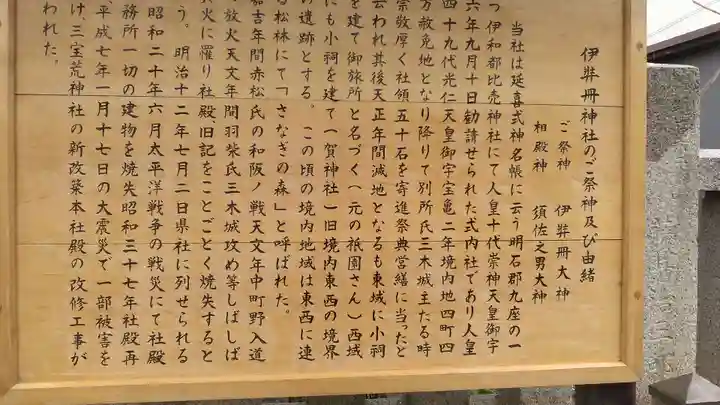 伊弉冊神社のご祭神及び由緒
ご祭神 伊弉冊大神
相殿神 須佐之男大神
当社は延喜式神名帳に云う明石郡九座の一
つ伊和都比売神社にて人皇十代崇神天皇御宇
六年九月十日勧請せられた式内社であり人皇
四十九代光仁天皇御宇宝亀二年境内地四町四
方赦免地となり降りて別所氏三木城主たる時
崇敬厚く社領五十石を寄進祭典営繕に当ったと
云われ其後天正年間減地となるも東域に小祠
を建て御旅所と名づく(元の祇園さん)西域
にも小祠を建て(一賀神社)旧境内東西の境界
の遺跡とする。この頃の境内地域は東西に連
る松林にて「さなぎの森」と呼ばれた。
嘉吉年間赤松氏の和阪ノ戦天文年中町野入道
放火天文年間羽柴氏三木城攻め等しばしば
火に罹り社殿旧記をことごとく焼失すると
う。明治十二年七月二日県社に列せられる
昭和二十年六月太平洋戦争の戦災にて社殿
務所一切の建物を焼失昭和三十七年社殿再
平成七年一月十七日の大震災で一部被害を
け、三宝荒神社の新改築本社殿の改修工事が
われた。